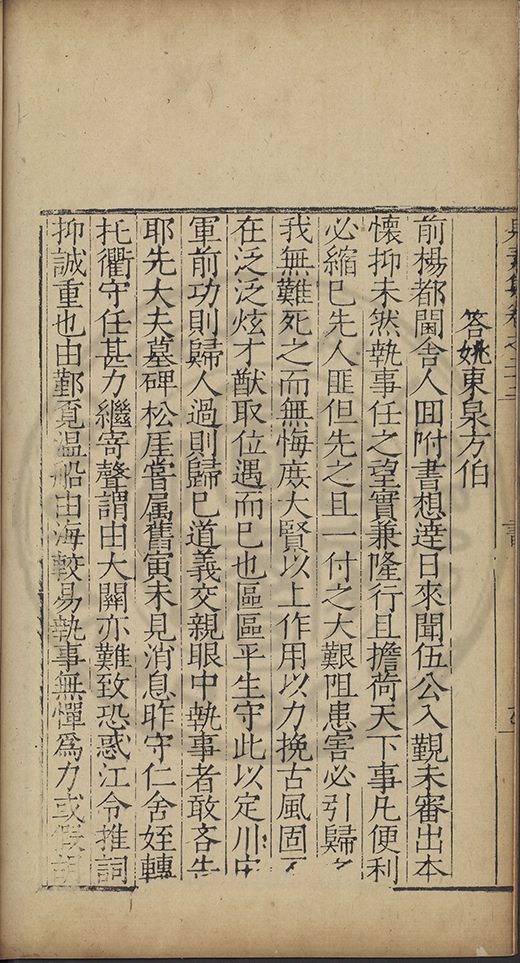 答姚東泉方伯
前楊都閫舍人囬附書想逹日來聞伍公入覲未審出本
懷抑未然執事任之望實兼隆行且擔荷天下事凡便利
必縮已先人匪但先之且一付之大艱阻患害必引歸
我無難死之而無悔庻大賢以上作用以力挽古風固
在泛泛炫才猷取位遇而已也區區平生守此以定川
軍前功則歸人過則歸已道義交親眼中執事者敢吝告
耶先大夫墓碑松厓嘗属舊寅未見消息昨守仁舍姪轉
托衢守任甚力繼寄聲謂由大關亦難致恐惑江令推詞
抑誠重也由鄞覔温船由海較易執事無憚爲力或假